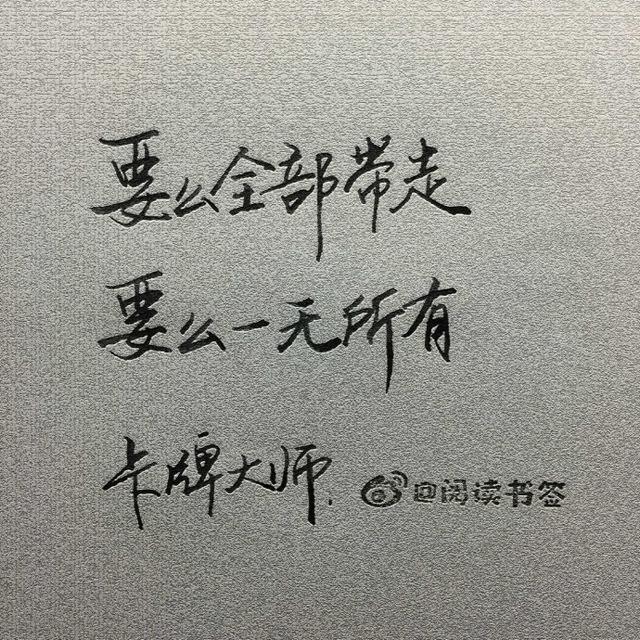 要么全部带走
要么一无所有
卡牌大师.
@阅读书签